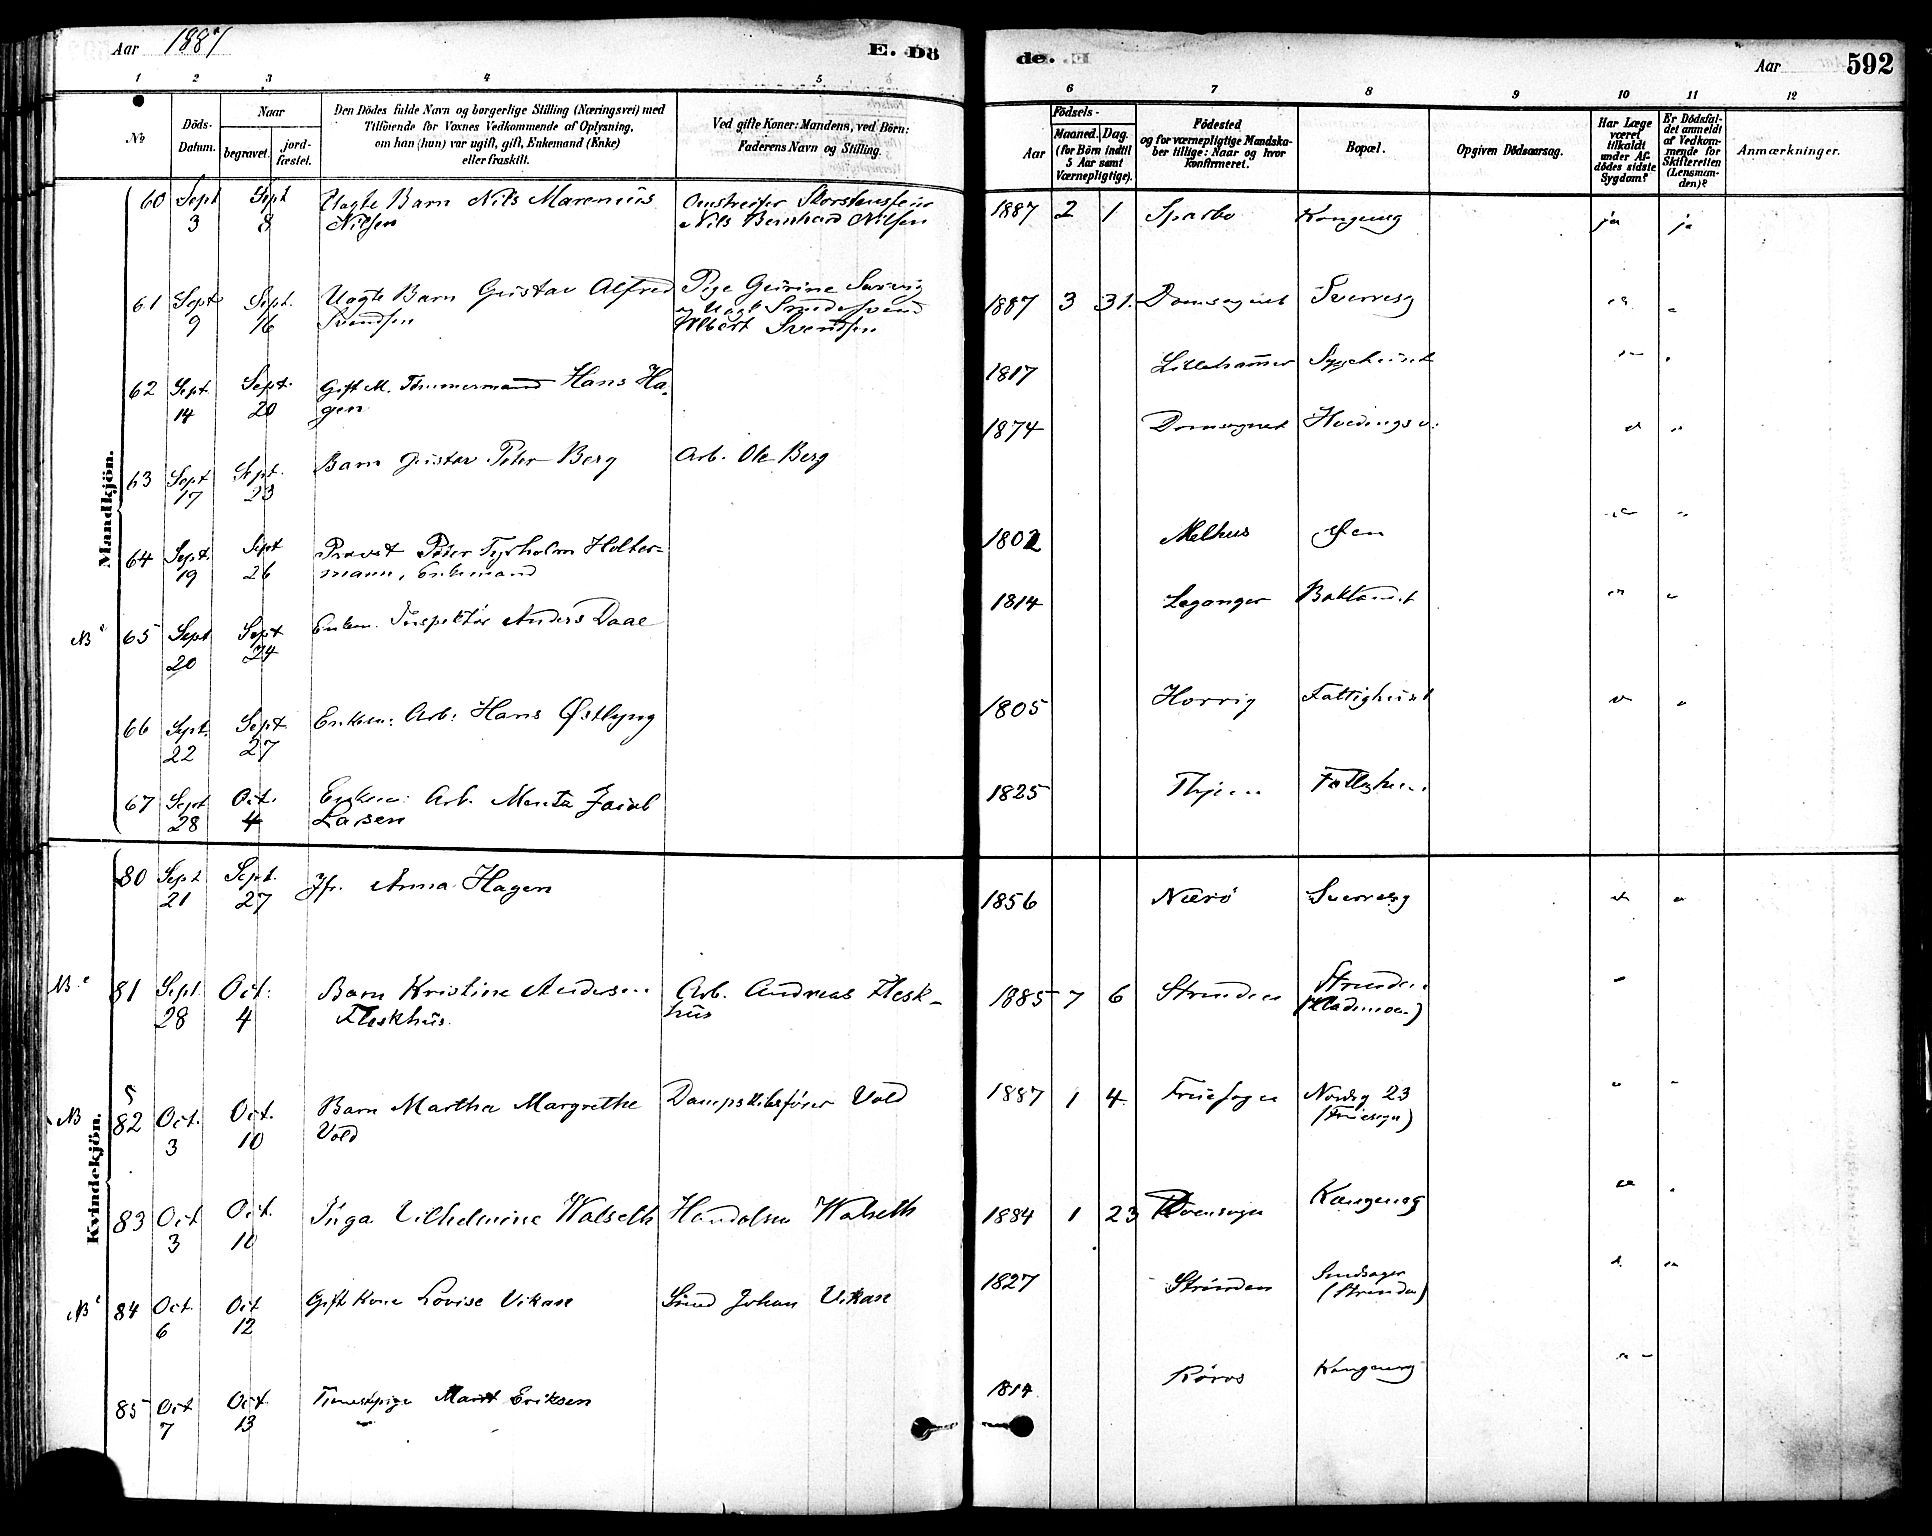 Aar 1887 E. Dö
de. Aar 592
1 2 3 4 5
6 7 8 9 10 11 12
No
Döds-Datum.
Naar
begravet. jordfæstet.
Den Dödes fulde Navn og borgerlige Stilling (Næringsvei) med
Tilföiende for Voxnes Vedkommende af Oplysning,
om han (hun) var ugift, gift, Enkemand (Enke)
eller fraskilt.
Ved gifte Koner: Mandens, ved Börn:
Faderens Navn og Stilling.
Födsels-
Aar
Maaned. Dag.
(for Börn indtil
5 Aar samt
Værnepligtige).
Födested
og for værnepligtige Mandska-
ber tillige: Naar og hvor
Konfirmeret.
Bopæl.
Opgiven Dödsaarsag.
Har Læge
været
tilkaldt
under Af-
dödes sidste
Sygdom?
Er Dödsfal-
det anmeldt
af Vedkom-
mende for
Skifteretten
(Lensman-
den)?
Anmærkninger.
Mandkjön.
60 Sept 3 Sept 8 Uægte Barn Nils Marenius Nilsen Nils Bernhard Nilsen 1887 2 1 Sparbo Kongensg ja ja
61 Sept 9 Sept. 16 Uægte Barn Gustav Alfred Svendsen Pige Albert Svendsen 1887 3 31. Domsognet Sverresg "
62 Sept. 14 Sept. 20 Gift M. Tømmermand Hans Hagen 1817 Lillehammer Sygehuset "
63 Sept 17 Sept. 23 Barn Gustav Peter Berg Arb. Ole Berg 1874 Domsognet " "
64 Sept. 19 Sept 26 Provst Peter Tyrholm Holtermann, Enkemand 1802 Melhus Øen " "
NB 65 Sept 20 Sept 24 Enkem. Inspektør Anders Daae 1814 Leganger Baklandet " "
66 Sept. 22 Sept 27 Enkem: Arb: Hans Østlyng 1805 Fattighuset " "
67 Sept 28 Oct. 4 Enkem: Arb. Jacob Larsen 1825
Kvindekjön.
80 Sept 21 Sept. 27 Jfr. Anna Hagen 1856 Nærö Sverresg " "
NB 81 Sept 28 Oct. 4 Barn Kristine Andersen Fleskhus. Arb. Andreas Fleskhus 1885 7 6 Strinden Strinden (Lademoen) "
NB 82 Oct. 3 Oct. 10 Barn Martha Margrethe Vold Dampskibsfører Vold 1887 1 4 Fruesogn Nordg 23 (Fruesogn) " "
83 Oct 3 Oct. 10 Inga Vilhelmine Walseth Handelsm Walseth 1884 1 23 Domsogn Kongensg "
NB 84 Oct. 6 Oct 12 Gift Kone Lovise Vikan Smed Johan Vikan 1827 Strinden (Strinden) " "
85 Oct 7 Oct. 13 Tjenestepige Marit Eriksen 1814 Röros Kongensg "